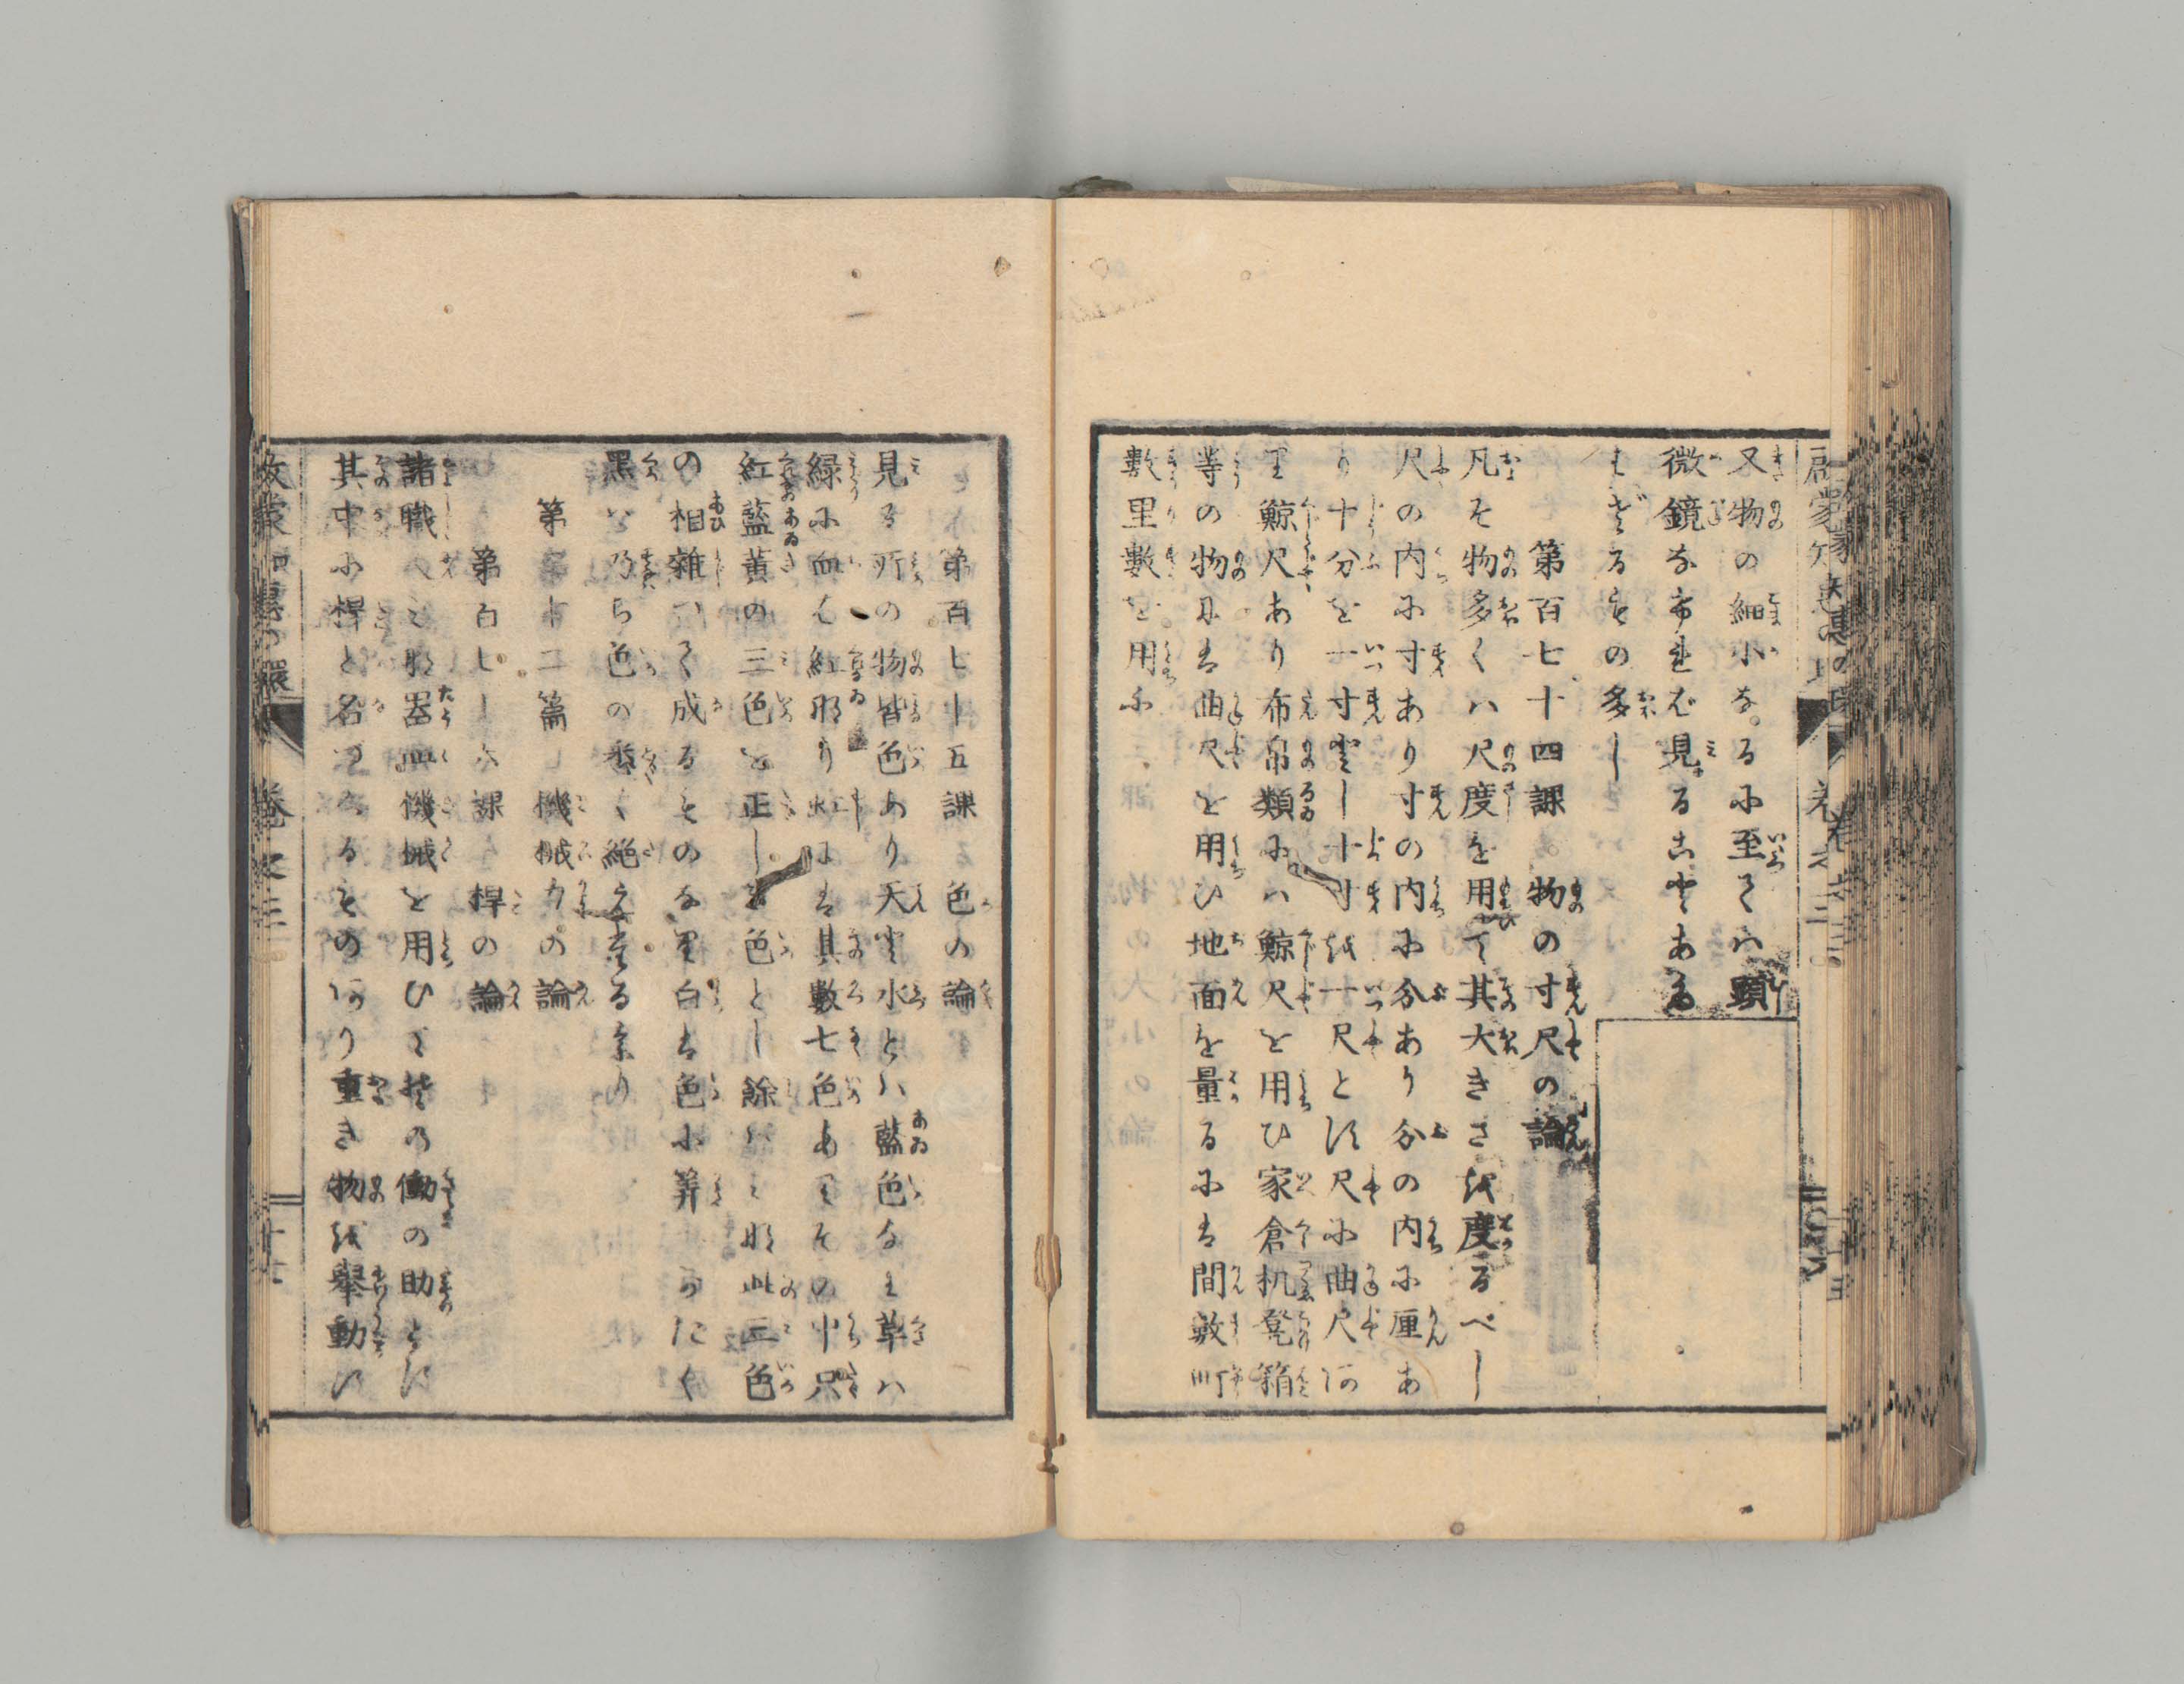 又物の細小なるに至ては顕
微鏡なければ見ることあた
はざるもの多し
第百七十四課 物の寸尺の論
凡そ物多くハ尺度を用て其大きさを度るべし
尺の内に寸あり寸の内に分あり分の内に厘あ
り十分を一寸とし十寸を一尺とす尺に曲尺あ
り鯨尺あり布帛類にハ鯨尺を用ひ家倉机凳箱
等の物には曲尺を用ひ地面を量るには間數町
數里數を用ふ
第百七十五課 色の論
見る所の物皆色あり天と水とハ藍色なり草ハ
緑に血は紅なり虹には其數七色ありその中只
紅藍黄の三色を正しき色とし餘はみな此三色
の相雜りて成るものなり白は色に算へがたく
黒は乃ち色の悉く絶えたるなり
第二十二篇 機械力の論
第百七十六課 桿の論
諸職人みな器皿機械を用ひて其の働の助とす
其中に桿と名づくるものあり重き物を擧動し
啓蒙知恵の環 卷之三 二十五